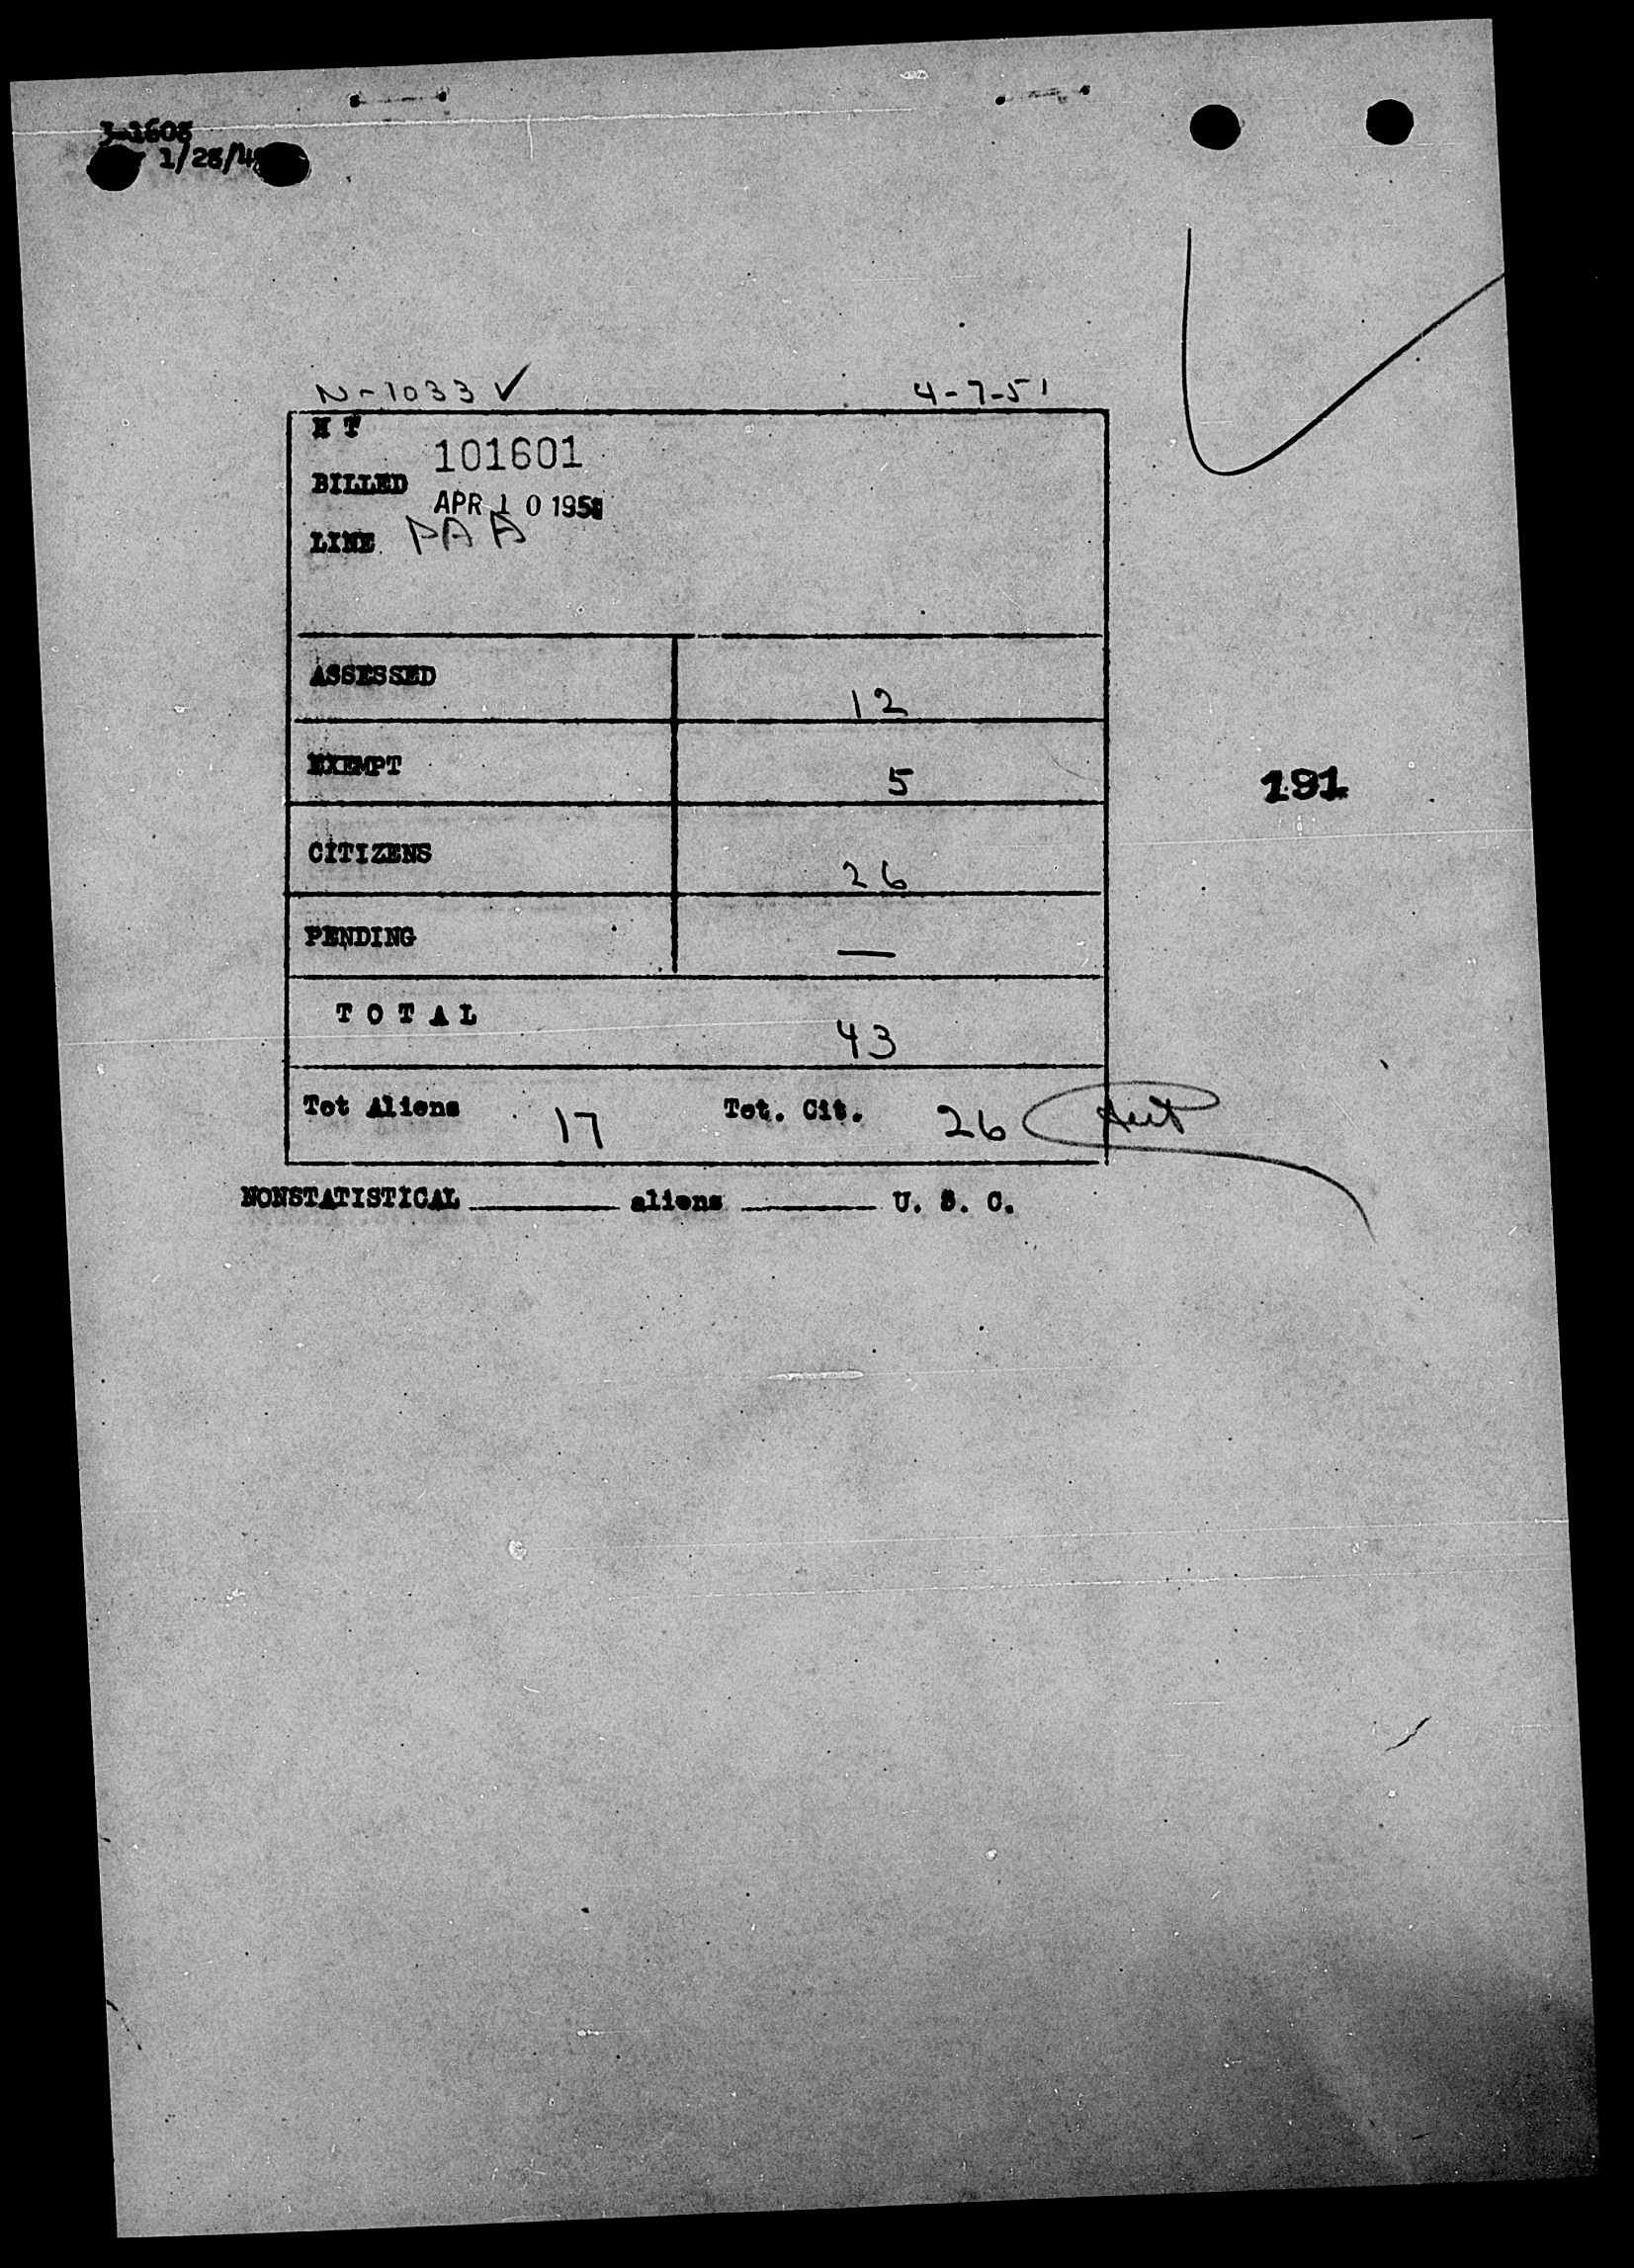 3-1608
1/28/49
N-1033 ✓ 4-7-51
H T
101601
BILLED
APR 10 1951
LINE PAA
ASSESSED 12
EXEMPT 5
191
CITIZENS 26
PENDING —
TOTAL 43
Tot Aliens 17 Tot. Cit. 26
NONSTATISTICAL ______ aliens ______ U. S. C.